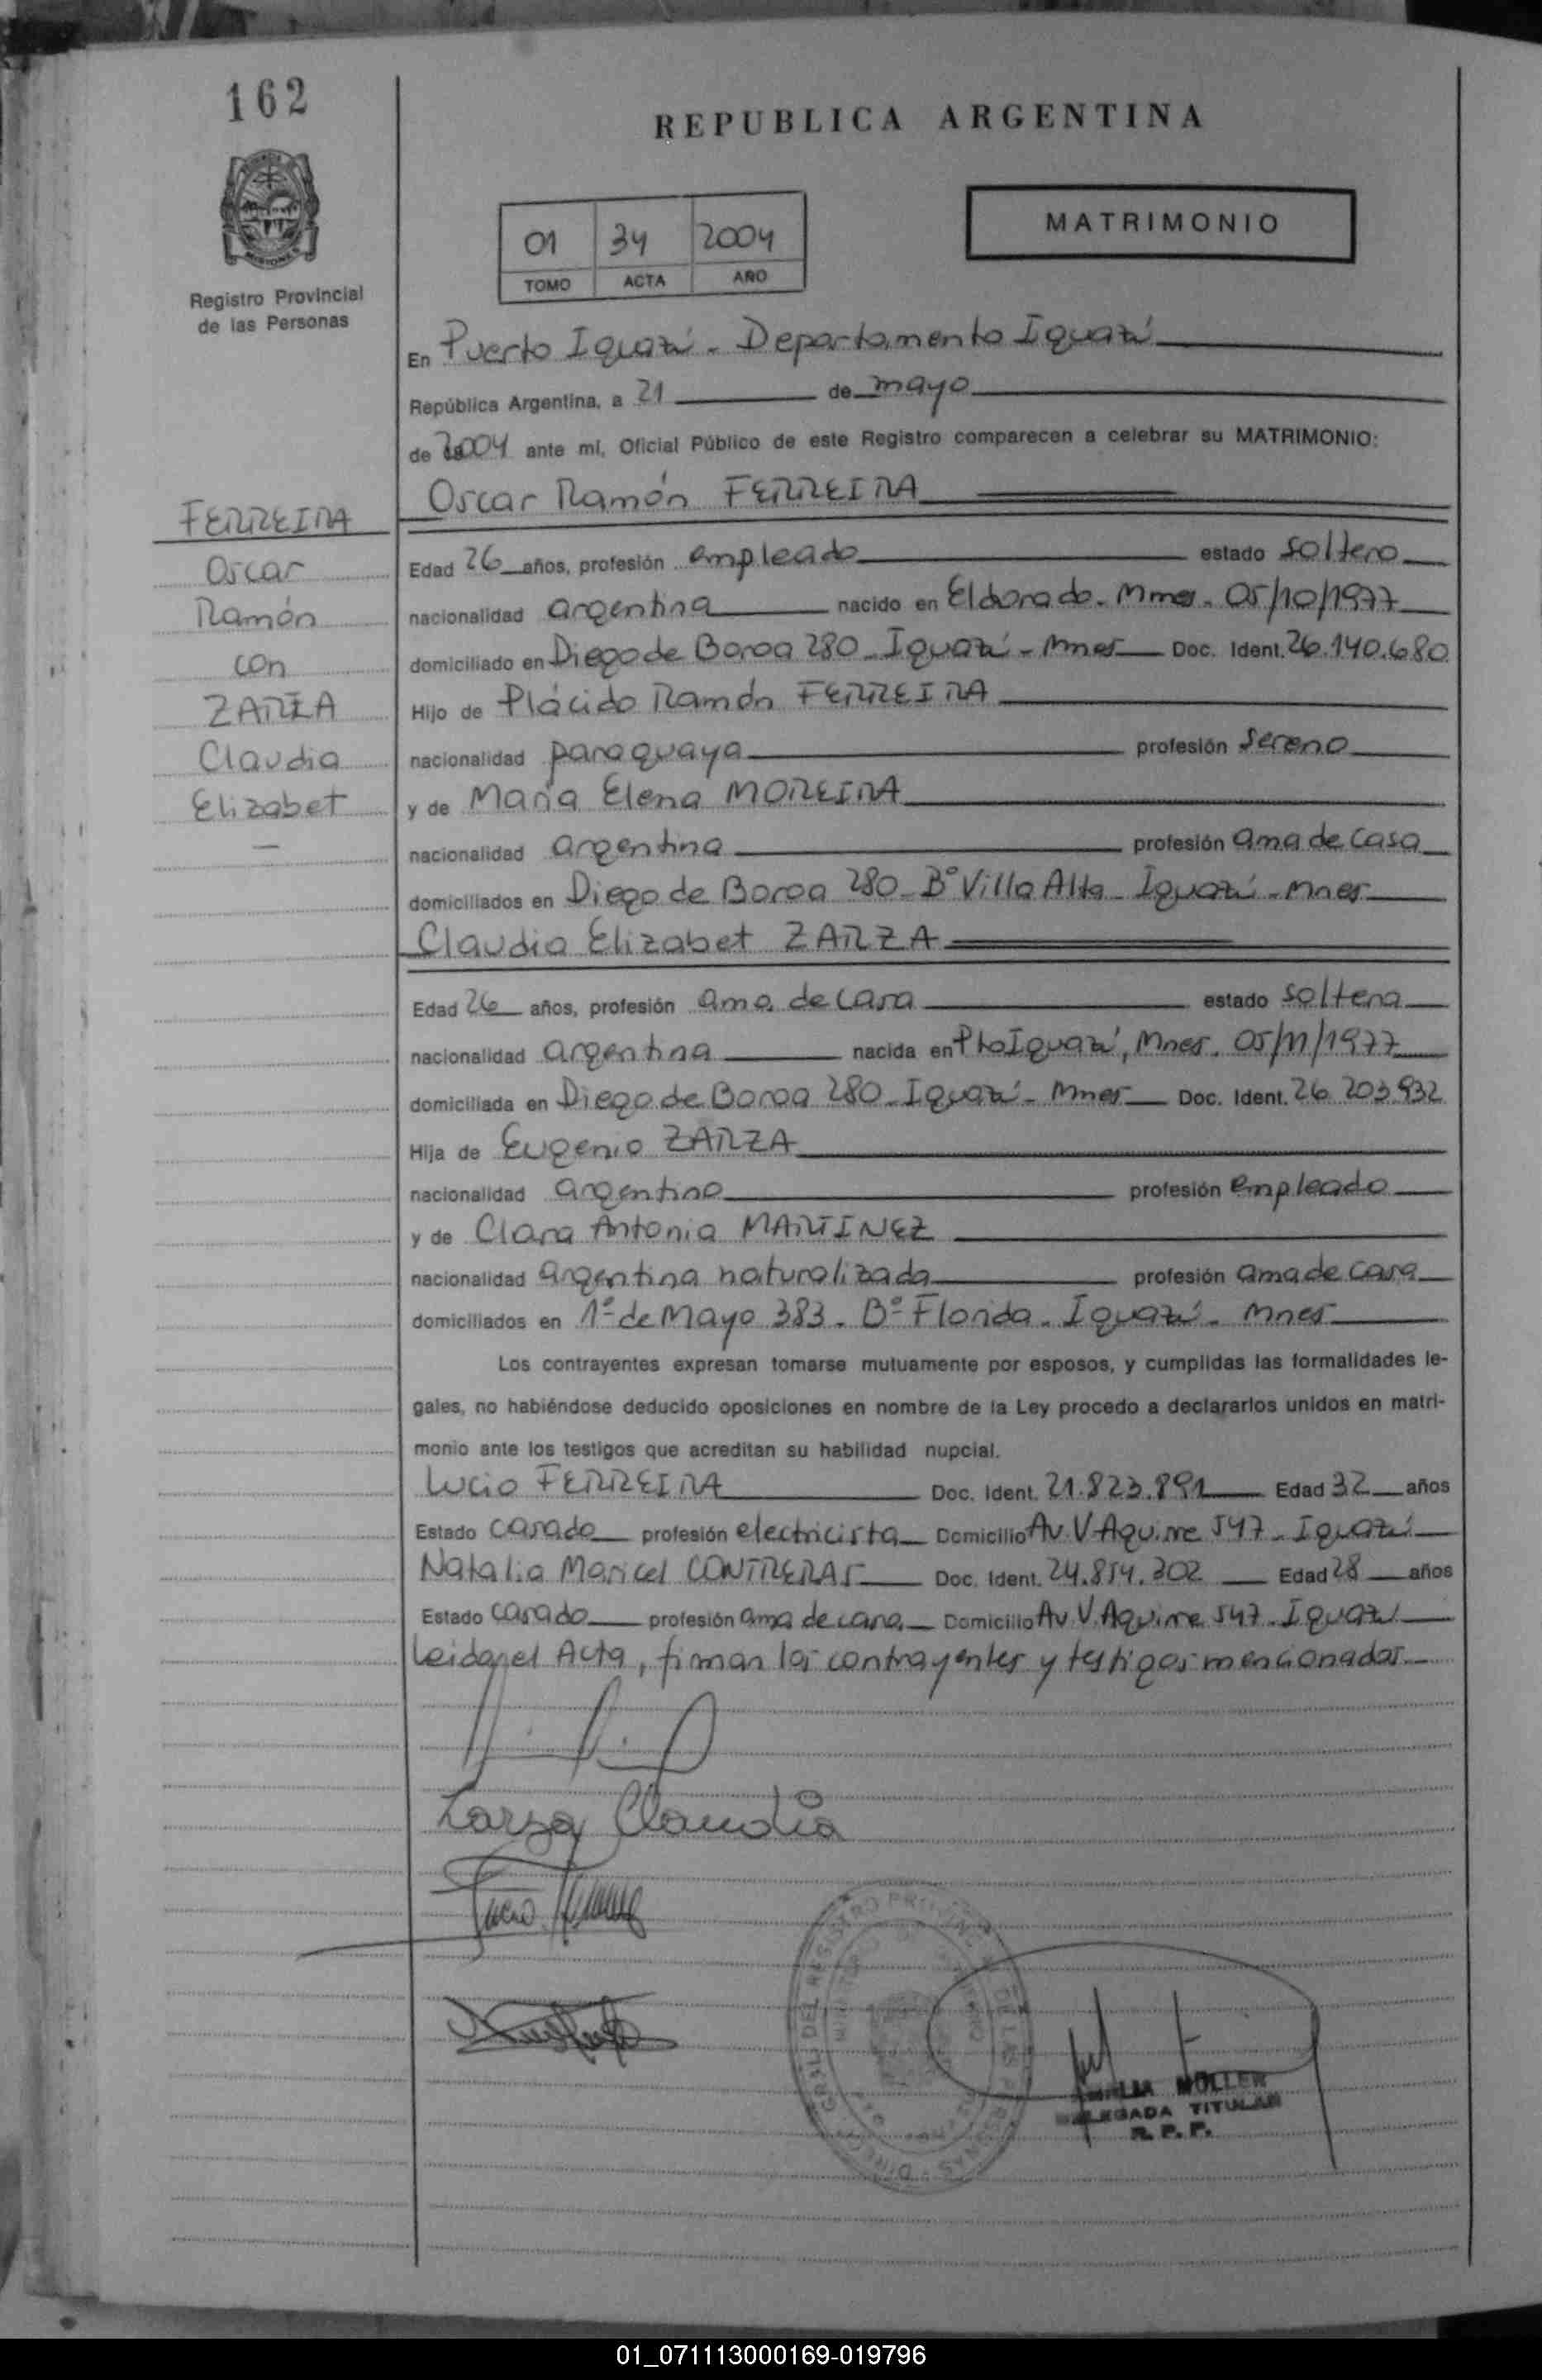 162
REPUBLICA ARGENTINA
MISIONES
Registro Provincial
de las Personas
01 34 2004
TOMO ACTA AÑO
MATRIMONIO
En Puerto Iguazú - Departamento Iguazú
República Argentina, a 21 de mayo
de 2004 ante mi, Oficial Público de este Registro comparecen a celebrar su MATRIMONIO:
Oscar Ramón FERREIRA
FERREIRA
Oscar
Ramón
con
ZARZA
Claudia
Elizabet
Edad 26 años, profesión empleado estado soltero
nacionalidad argentina nacido en Eldorado - Mnes - 05/10/1977
domiciliado en Diego de Boroa 280 - Iguazú - Mnes Doc. Ident. 26.140.680
Hijo de Plácido Ramón FERREIRA
nacionalidad paraguaya profesión sereno
y de María Elena MOREIRA
nacionalidad argentina profesión ama de casa
domiciliados en Diego de Boroa 280 - Bº Villa Alta - Iguazú - Mnes
Claudia Elizabet ZARZA
Edad 26 años, profesión ama de casa estado soltera
nacionalidad argentina nacida en Pto Iguazú, Mnes. 05/11/1977
domiciliada en Diego de Boroa 280 - Iguazú - Mnes Doc. Ident. 26.203.932
Hija de Eugenio ZARZA
nacionalidad argentina profesión empleado
y de Clara Antonia MARTINEZ
nacionalidad argentina naturalizada profesión ama de casa
domiciliados en 1º de Mayo 383 - Bº Florida - Iguazú - Mnes
Los contrayentes expresan tomarse mutuamente por esposos, y cumplidas las formalidades le-
gales, no habiéndose deducido oposiciones en nombre de la Ley procedo a declararlos unidos en matri-
monio ante los testigos que acreditan su habilidad nupcial.
Lucio FERREIRA Doc. Ident. 21.823.891 Edad 32 años
Estado casado profesión electricista Domicilio Av. V Aguirre 547 - Iguazú
Natalia Maricel CONTRERAS Doc. Ident. 24.854.302 Edad 28 años
Estado casado profesión ama de casa Domicilio Av. V. Aguirre 547 - Iguazú
Leida el Acta, firman los contrayentes y testigos mencionados
Zarza Claudia
MÜLLER
DELEGADA TITULAR
R. P. P.
01_071113000169-019796